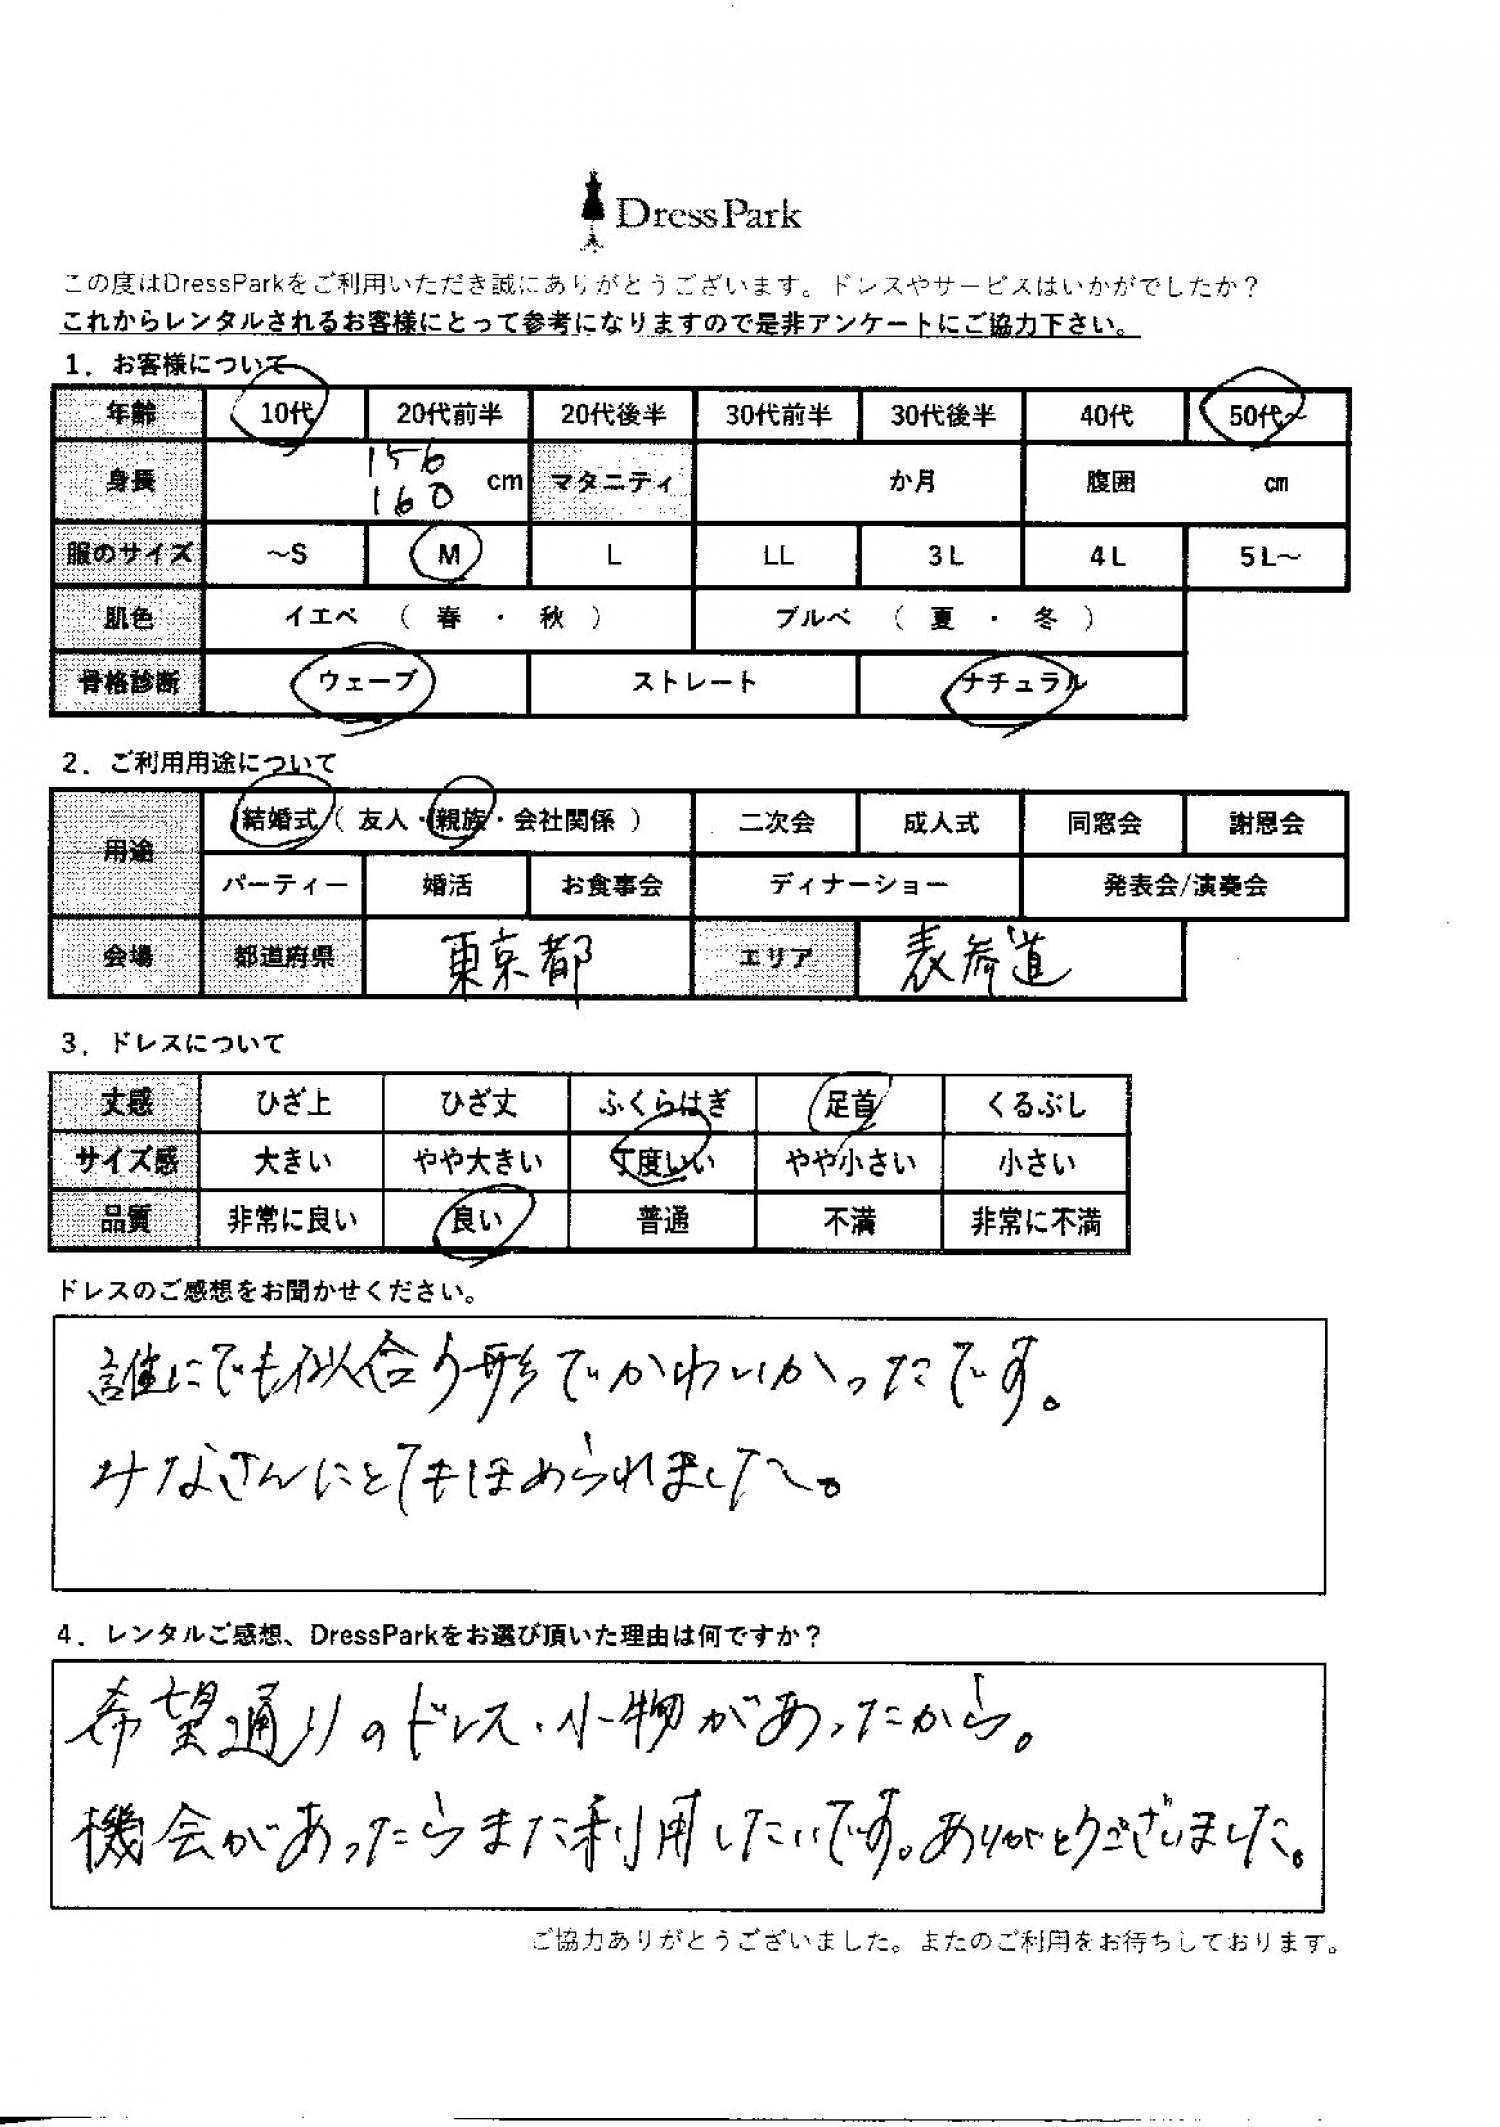 DressPark
この度はDressParkをご利用いただき誠にありがとうございます。ドレスやサービスはいかがでしたか？
これからレンタルされるお客様にとって参考になりますので是非アンケートにご協力下さい。
1．お客様について
年齢 10代 20代前半 20代後半 30代前半 30代後半 40代 50代～
身長 156 160 cm マタニティ か月 腹囲 cm
服のサイズ ～S M L LL 3L 4L 5L～
肌色 イエベ （ 春 ・ 秋 ） ブルベ （ 夏 ・ 冬 ）
骨格診断 ウェーブ ストレート ナチュラル
2．ご利用用途について
用途 結婚式（ 友人・親族・会社関係 ） 二次会 成人式 同窓会 謝恩会
パーティー 婚活 お食事会 ディナーショー 発表会/演奏会
会場 都道府県 東京都 エリア 表参道
3．ドレスについて
丈感 ひざ上 ひざ丈 ふくらはぎ 足首 くるぶし
サイズ感 大きい やや大きい 丁度いい やや小さい 小さい
品質 非常に良い 良い 普通 不満 非常に不満
ドレスのご感想をお聞かせください。
誰にでも似合う形でかわいかったです。
みなさんにとてもほめられました。
4．レンタルご感想、DressParkをお選び頂いた理由は何ですか？
希望通りのドレス・小物があったから。
機会があったらまた利用したいです。ありがとうございました。
ご協力ありがとうございました。またのご利用をお待ちしております。